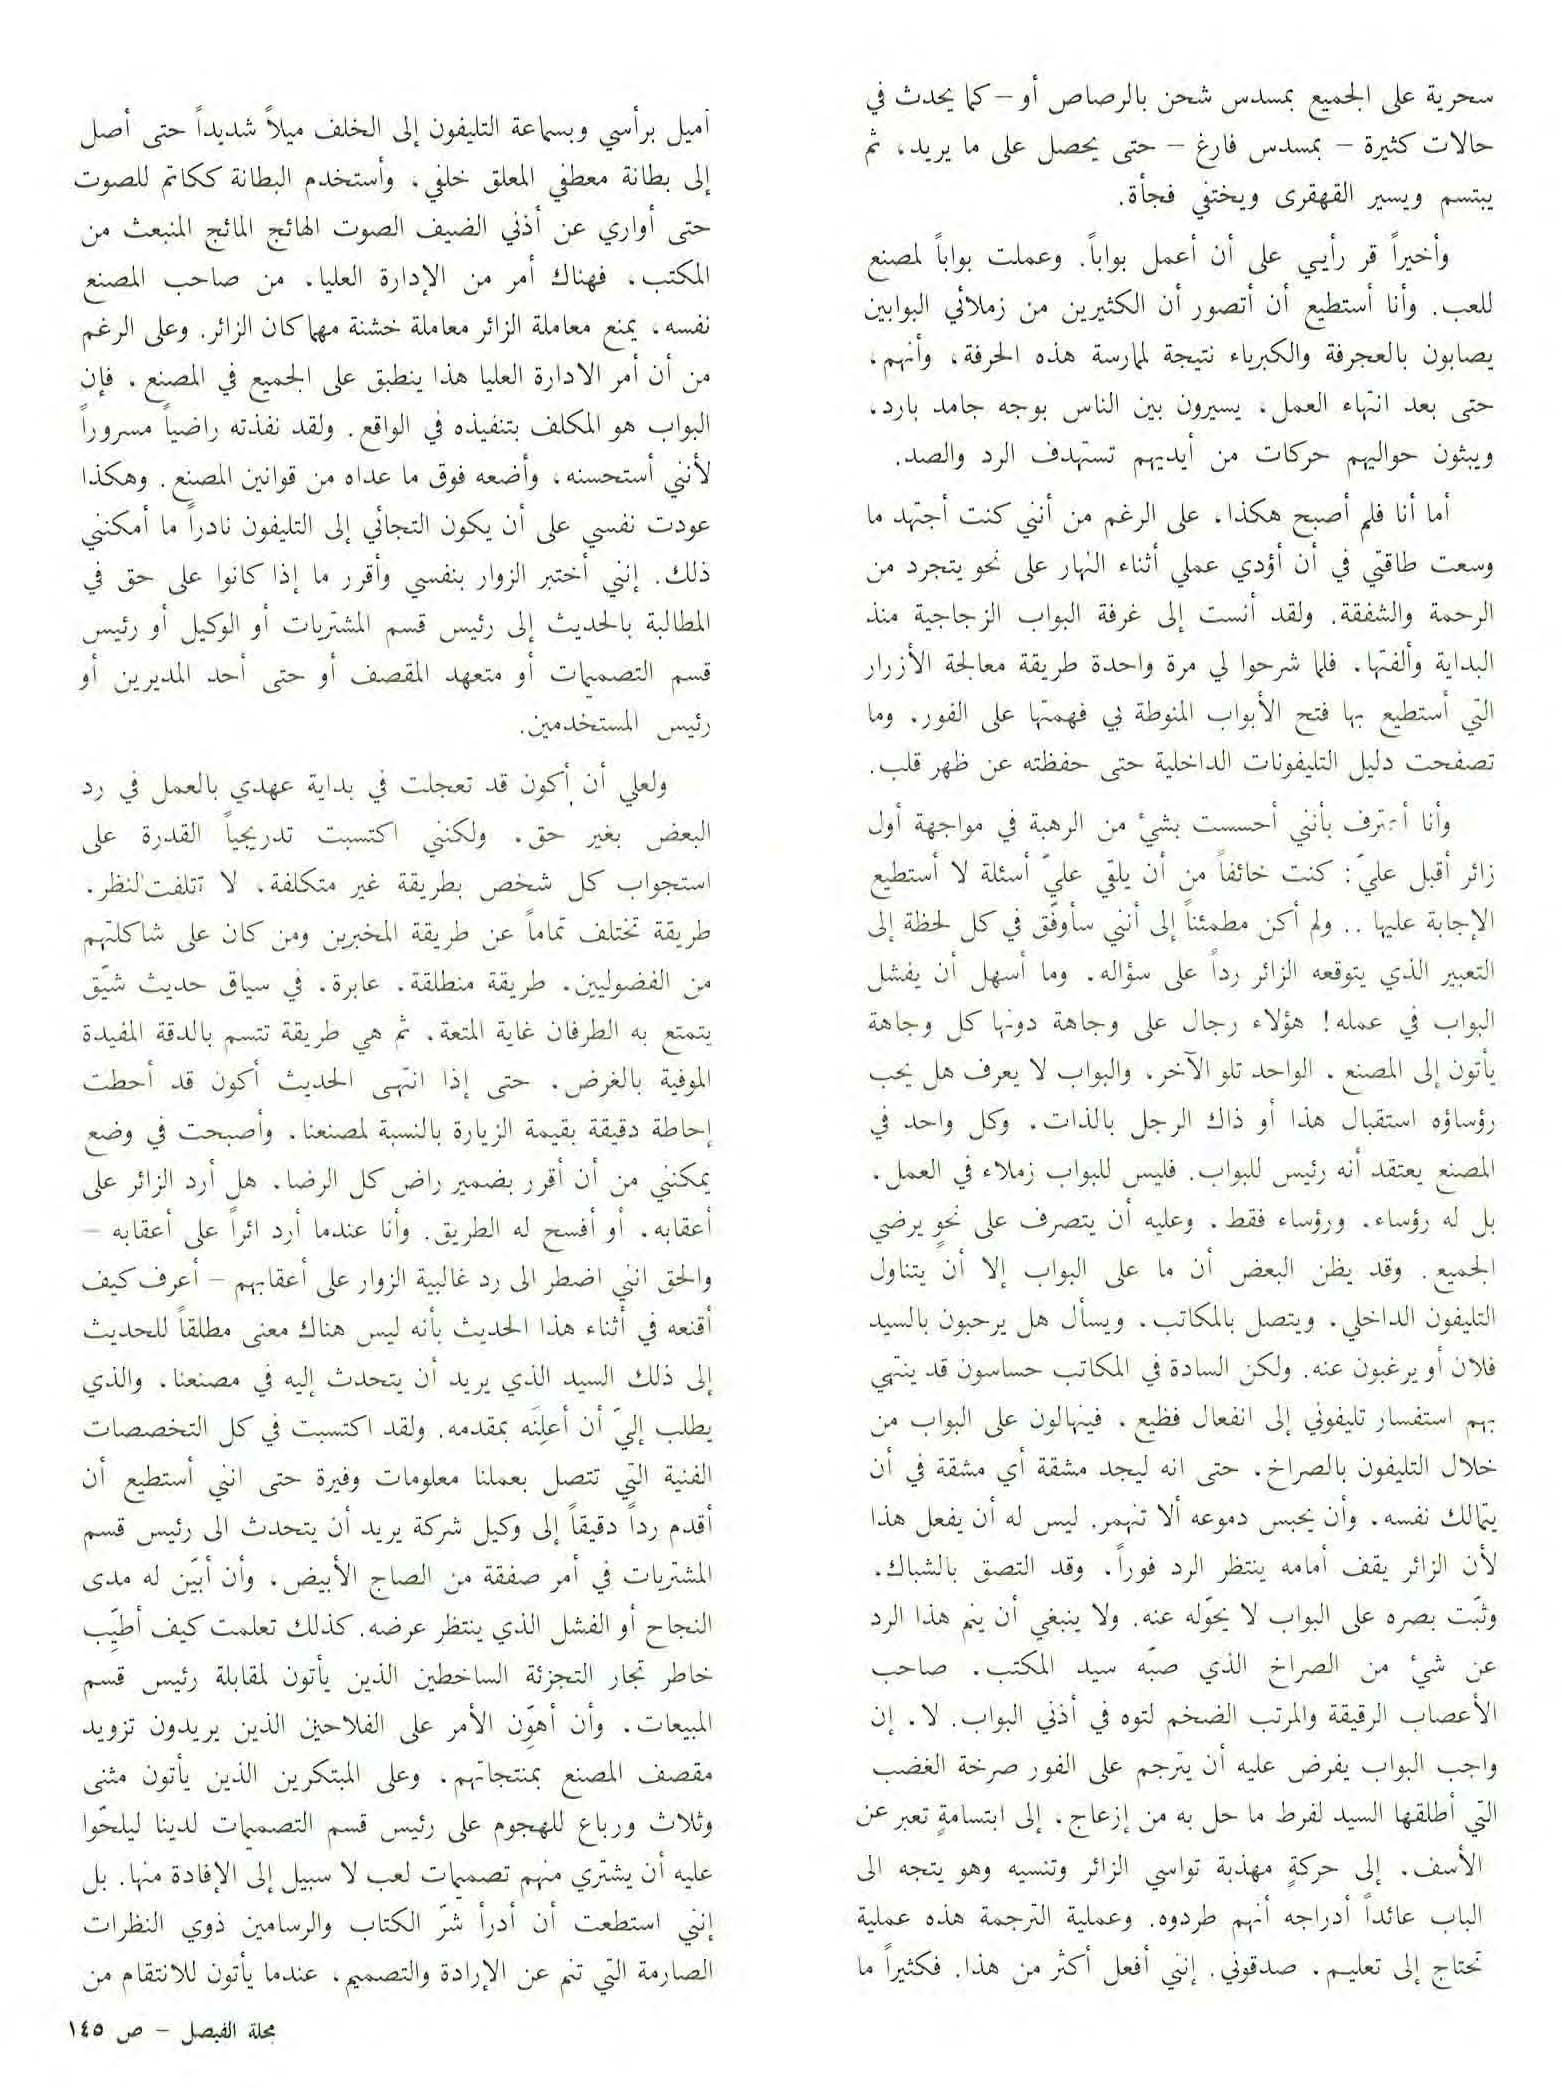 سحرية على الجميع بمسدس شحن بالرصاص أو – كما يحدث في
حالات كثيرة – بمسدس فارغ – حتى يحصل على ما يريد، ثم
يبتسم ويسير القهقرى ويختفي فجأة.
وأخيراً قر رأيي على أن أعمل بواباً. وعملت بواباً لمصنع
للعب. وأنا أستطيع أن أتصور أن الكثيرين من زملائي البوابين
يصابون بالعجرفة والكبرياء نتيجة لممارسة هذه الحرفة، وأنهم،
حتى بعد انتهاء العمل، يسيرون بين الناس بوجه جامد بارد،
ويبثون حواليهم حركات من أيديهم تستهدف الرد والصد.
أما أنا فلم أصبح هكذا، على الرغم من أنني كنت أجتهد ما
وسعت طاقتي في أن أؤدي عملي أثناء النهار على نحو يتجرد من
الرحمة والشفقة. ولقد أنست إلى غرفة البواب الزجاجية منذ
البداية وألفتها، فلما شرحوا لي مرة واحدة طريقة معالجة الأزرار
التي أستطيع بها فتح الأبواب المنوطة بي فهمتها على الفور، وما
تصفحت دليل التليفونات الداخلية حتى حفظته عن ظهر قلب.
وأنا أعترف بأنني أحسست بشيء من الرهبة في مواجهة أول
زائر أقبل عليّ: كنت خائفاً من أن يلقي عليّ أسئلة لا أستطيع
الإجابة عليها .. ولم أكن مطمئناً إلى أنني سأوفّق في كل لحظة إلى
التعبير الذي يتوقعه الزائر رداً على سؤاله. وما أسهل أن يفشل
البواب في عمله! هؤلاء رجال على وجاهة دونها كل وجاهة
يأتون إلى المصنع، الواحد تلو الآخر، والبواب لا يعرف هل يحب
رؤساؤه استقبال هذا أو ذاك الرجل بالذات، وكل واحد في
المصنع يعتقد أنه رئيس للبواب. فليس للبواب زملاء في العمل،
بل له رؤساء، ورؤساء فقط، وعليه أن يتصرف على نحوٍ يرضي
الجميع. وقد يظن البعض أن ما على البواب إلا أن يتناول
التليفون الداخلي، ويتصل بالمكاتب، ويسأل هل يرحبون بالسيد
فلان أو يرغبون عنه. ولكن السادة في المكاتب حساسون قد ينتهي
بهم استفسار تليفوني إلى انفعال فظيع، فينهالون على البواب من
خلال التليفون بالصراخ، حتى انه ليجد مشقة أي مشقة في أن
يتمالك نفسه، وأن يحبس دموعه ألا تنهمر. ليس له أن يفعل هذا
لأن الزائر يقف أمامه ينتظر الرد فوراً، وقد التصق بالشباك،
وثبّت بصره على البواب لا يحوّله عنه. ولا ينبغي أن ينم هذا الرد
عن شيء من الصراخ الذي صبّه سيد المكتب، صاحب
الأعصاب الرقيقة والمرتب الضخم لتوه في أذني البواب. لا، إن
واجب البواب يفرض عليه أن يترجم على الفور صرخة الغضب
التي أطلقها السيد لفرط ما حل به من إزعاج، إلى ابتسامةٍ تعبر عن
الأسف، إلى حركةٍ مهذبة تواسي الزائر وتنسيه وهو يتجه الى
الباب عائداً أدراجه أنهم طردوه. وعملية الترجمة هذه عملية
تحتاج إلى تعليم، صدقوني. إنني أفعل أكثر من هذا. فكثيراً ما
أميل برأسي وبسماعة التليفون إلى الخلف ميلاً شديداً حتى أصل
إلى بطانة معطفي المعلق خلفي، وأستخدم البطانة ككاتم للصوت
حتى أواري عن أذني الضيف الصوت الهائج المائج المنبعث من
المكتب، فهناك أمر من الإدارة العليا، من صاحب المصنع
نفسه، يمنع معاملة الزائر معاملة خشنة مهما كان الزائر. وعلى الرغم
من أن أمر الادارة العليا هذا ينطبق على الجميع في المصنع، فإن
البواب هو المكلف بتنفيذه في الواقع. ولقد نفذته راضياً مسروراً
لأنني أستحسنه، وأضعه فوق ما عداه من قوانين المصنع. وهكذا
عودت نفسي على أن يكون التجائي إلى التليفون نادراً ما أمكنني
ذلك. إنني أختبر الزوار بنفسي وأقرر ما إذا كانوا على حق في
المطالبة بالحديث إلى رئيس قسم المشتريات أو الوكيل أو رئيس
قسم التصميمات أو متعهد المقصف أو حتى أحد المديرين أو
رئيس المستخدمين.
ولعلي أن أكون قد تعجلت في بداية عهدي بالعمل في رد
البعض بغير حق، ولكنني اكتسبت تدريجياً القدرة على
استجواب كل شخص بطريقة غير متكلفة، لا تتلفت النظر،
طريقة تختلف تماماً عن طريقة المخبرين ومن كان على شاكلتهم
من الفضوليين، طريقة منطلقة، عابرة، في سياق حديث شيّق
يتمتع به الطرفان غاية المتعة، ثم هي طريقة تتسم بالدقة المفيدة
الموفية بالغرض، حتى إذا انتهى الحديث أكون قد أحطت
إحاطة دقيقة بقيمة الزيارة بالنسبة لمصنعنا، وأصبحت في وضع
يمكنني من أن أقرر بضمير راض كل الرضا، هل أرد الزائر على
أعقابه، أو أفسح له الطريق. وأنا عندما أرد ائراً على أعقابه –
والحق انني اضطر الى رد غالبية الزوار على أعقابهم – أعرف كيف
أقنعه في أثناء هذا الحديث بأنه ليس هناك معنى مطلقاً للحديث
إلى ذلك السيد الذي يريد أن يتحدث إليه في مصنعنا، والذي
يطلب إليّ أن أعلِنَه بمقدمه. ولقد اكتسبت في كل التخصصات
الفنية التي تتصل بعملنا معلومات وفيرة حتى انني أستطيع أن
أقدم رداً دقيقاً إلى وكيل شركة يريد أن يتحدث الى رئيس قسم
المشتريات في أمر صفقة من الصاج الأبيض، وأن أبيّن له مدى
النجاح أو الفشل الذي ينتظر عرضه. كذلك تعلمت كيف أطيّب
خاطر تجار التجزئة الساخطين الذين يأتون لمقابلة رئيس قسم
المبيعات، وأن أهوّن الأمر على الفلاحين الذين يريدون تزويد
مقصف المصنع بمنتجاتهم، وعلى المبتكرين الذين يأتون مثنى
وثلاث ورباع للهجوم على رئيس قسم التصميمات لدينا ليلحّوا
عليه أن يشتري منهم تصميمات لعب لا سبيل إلى الإفادة منها. بل
إنني استطعت أن أدرأ شرّ الكتاب والرسامين ذوي النظرات
الصارمة التي تنم عن الإرادة والتصميم، عندما يأتون للانتقام من
مجلة الفيصل – ص ١٤٥